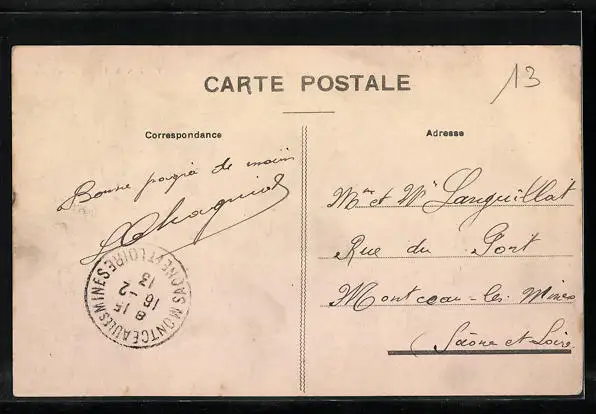 CARTE POSTALE
13
Correspondance
Adresse
Bonne poignée de main
Mme et Mr Languillat
Rue du Port
Montceau-les-Mines
Saône et Loire
MONTCEAU LES MINES SAONE ET LOIRE
8 15
16 - 2
13